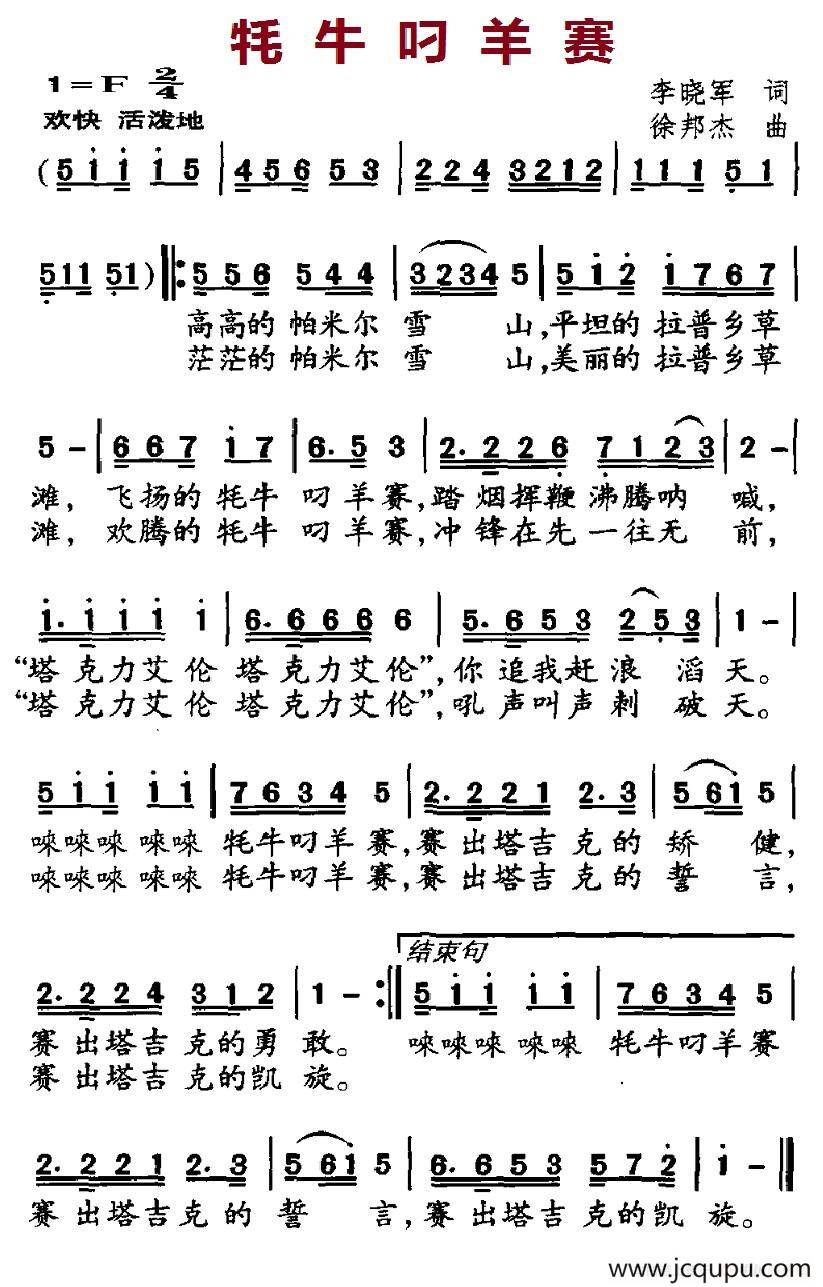 牦牛叼羊赛
1=F 2/4
李晓军 词
欢快 活泼地
徐邦杰 曲
(5 1 1 1 5 | 4 5 6 5 6 5 3 | 2 2 4 3 2 1 2 | 1 1 1 5 1 |
5 1 1 5 1) |: 5 5 6 5 4 4 | 3 2 3 4 5 | 5 1 2 1 7 6 7 |
高高的 帕米尔 雪 山,平坦的 拉普乡草
茫茫的 帕米尔 雪 山,美丽的 拉普乡草
5 - | 6 6 7 1 7 | 6. 5 3 | 2. 2 2 6 7 1 2 3 | 2 - |
滩, 飞扬的 牦牛 叼羊赛,踏烟挥鞭 沸腾呐 喊,
滩, 欢腾的 牦牛 叼羊赛,冲锋在先 一往无 前,
1. 1 1 1 1 | 6. 6 6 6 6 | 5. 6 5 3 2 5 3 | 1 - |
“塔 克力艾 伦 塔 克力艾伦”,你 追我赶 浪 滔天。
“塔 克力艾 伦 塔 克力艾伦”,吼 声叫声 刺 破天。
5 1 1 1 1 | 7 6 3 4 5 | 2. 2 2 1 2. 3 | 5 6 1 5 |
唻唻唻 唻唻 牦牛叼羊 赛,赛 出塔吉 克 的 矫 健,
唻唻唻 唻唻 牦牛叼羊 赛,赛 出塔吉 克 的 誓 言,
结束句
2. 2 2 4 3 1 2 | 1 - :| 5 1 1 1 1 | 7 6 3 4 5 |
赛 出塔吉 克的勇 敢。 唻唻唻 唻唻 牦牛叼羊 赛
赛 出塔吉 克的凯 旋。
2. 2 2 1 2. 3 | 5 6 1 5 | 6. 6 5 3 5 7 2 | 1 - ‖
赛 出塔吉 克 的 誓 言,赛 出塔吉 克的凯 旋。
www.jcqupu.com